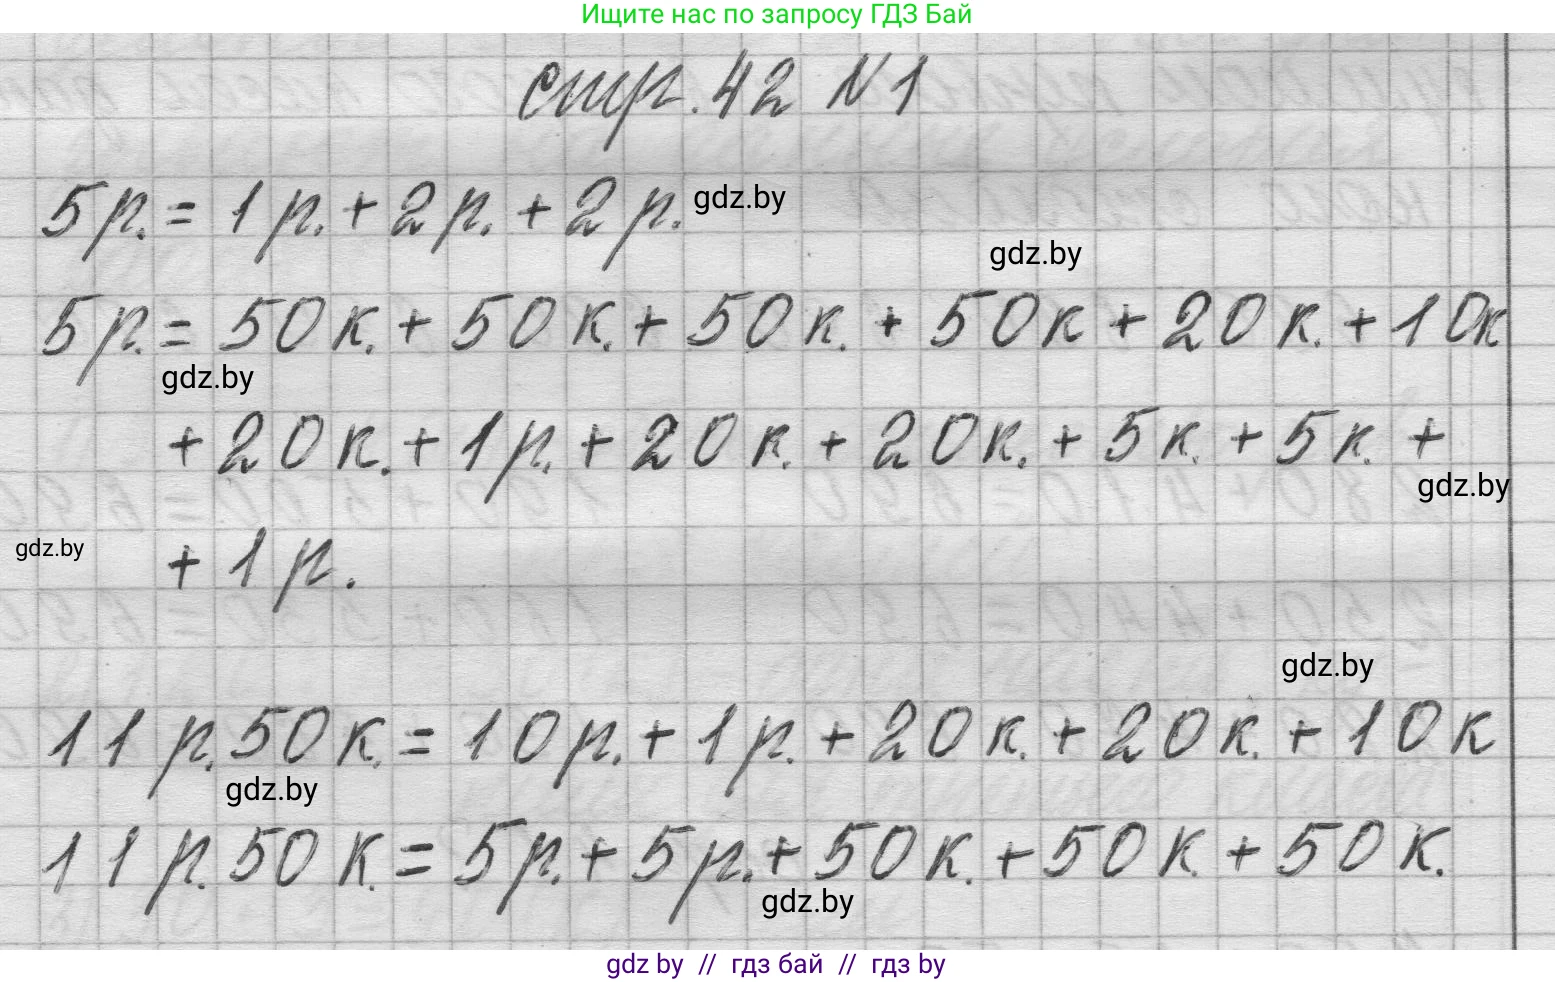 Ищите нас по запросу ГДЗ Бай
стр. 42 N1
5 р. = 1 р. + 2 р. + 2 р. gdz.by
gdz.by
5 р. = 50 к. + 50 к. + 50 к. + 50 к + 20 к. + 10к
gdz.by
+ 20 к. + 1 р. + 20 к. + 20 к. + 5 к. + 5 к. +
gdz.by
gdz.by
+ 1 р.
gdz.by
11 р. 50 к. = 10 р. + 1 р. + 20 к. + 20 к. + 10 к
gdz.by
11 р. 50 к. = 5 р. + 5 р. + 50 к. + 50 к. + 50 к.
gdz.by
gdz by // гдз бай // гдз by